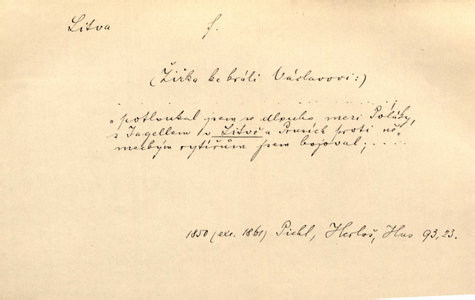 Litva f.
(Žižka ke králi Václavovi:)
. . . . . . . . . . . . . . .
„potloukal jsem se dlouho mezi Poláky,
s Jagellem v Litvě a Prusích proti ně-
meckým rytířům jsem bojoval; . . . .
1850 (exc. 1861) Pichl, Herloš, Hus 93, 23.